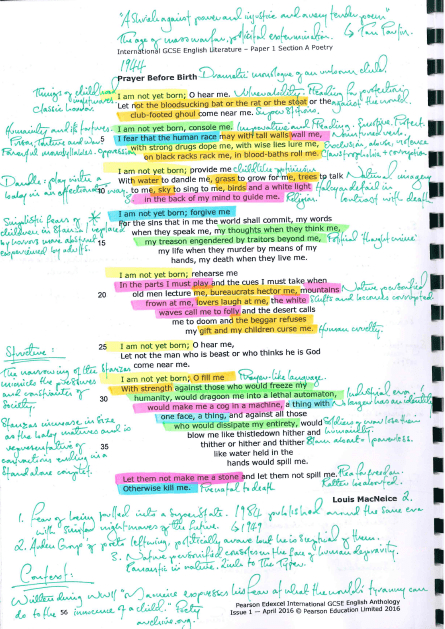 "A shriek against power and injustice and a very tender poem"
The age of mass warfare, political extermination. ↳ Tom Paulin.
International GCSE English Literature – Paper 1 Section A Poetry
1944
Prayer Before Birth Dramatic monologue of an unborn child.
I am not yet born; O hear me. Vulnerability. Pleading for protection
Let not the bloodsucking bat or the rat or the stoat or the against the world.
club-footed ghoul come near me. Superstitions.
Things of childhood nightmares.
Classic horror
I am not yet born, console me. Imperative and Pleading.
5 I fear that the human race may with tall walls wall me,
with strong drugs dope me, with wise lies lure me,
on black racks rack me, in blood-baths roll me. Claustrophobic +
Humanity and its tortures.
I am not yet born; provide me childlike
With water to dandle me, grass to grow for me, trees to talk Natural imagery
10 to me, sky to sing to me, birds and a white light
in the back of my mind to guide me. Religion. Contrast with death
Dandle: play with a
baby in an affectionate way.
I am not yet born; forgive me
For the sins that in me the world shall commit, my words
when they speak me, my thoughts when they think me,
15 my treason engendered by traitors beyond me,
my life when they murder by means of my
hands, my death when they live me.
Simplistic fears of
children in stanza 1 replaced
by horrors more abstract
experienced by adults.
I am not yet born; rehearse me
In the parts I must play and the cues I must take when
20 old men lecture me, bureaucrats hector me, mountains Nature personified
frown at me, lovers laugh at me, the white Shifts and becomes corrupted
waves call me to folly and the desert calls
me to doom and the beggar refuses
my gift and my children curse me. Human cruelty.
25 I am not yet born; O hear me,
Let not the man who is beast or who thinks he is God
come near me.
Structure:
The narrowing of the stanzas
mimics the pressures
and conformity of
society.
I am not yet born; O fill me Prayer-like language.
With strength against those who would freeze my
30 humanity, would dragoon me into a lethal automaton, Industrial era.
would make me a cog in a machine, a thing with
one face, a thing, and against all those
who would dissipate my entirety, would
blow me like thistledown hither and humanity.
35 thither or hither and thither
like water held in the
hands would spill me.
Stanzas increase in size
as the baby matures and is
representative of
ending in a
stand alone couplet.
Let them not make me a stone and let them not spill me. Plea for freedom.
Otherwise kill me. Prenatal to death
Louis MacNeice 2.
1. Fear of being pulled into a Superstate. 1984 published around the same era
with similar nightmares of the future. ↳ 1949
2. Auden Group of poets leftwing, politically aware but he is sceptical of them.
3. Nature personified consoles in the face of human depravity.
Context:
Written during WWII "Macneice expresses his fear at what the world's tyranny can
do to the innocence of a child." Poetry
archive.org.
56
Pearson Edexcel International GCSE English Anthology
Issue 1 — April 2016 © Pearson Education Limited 2016